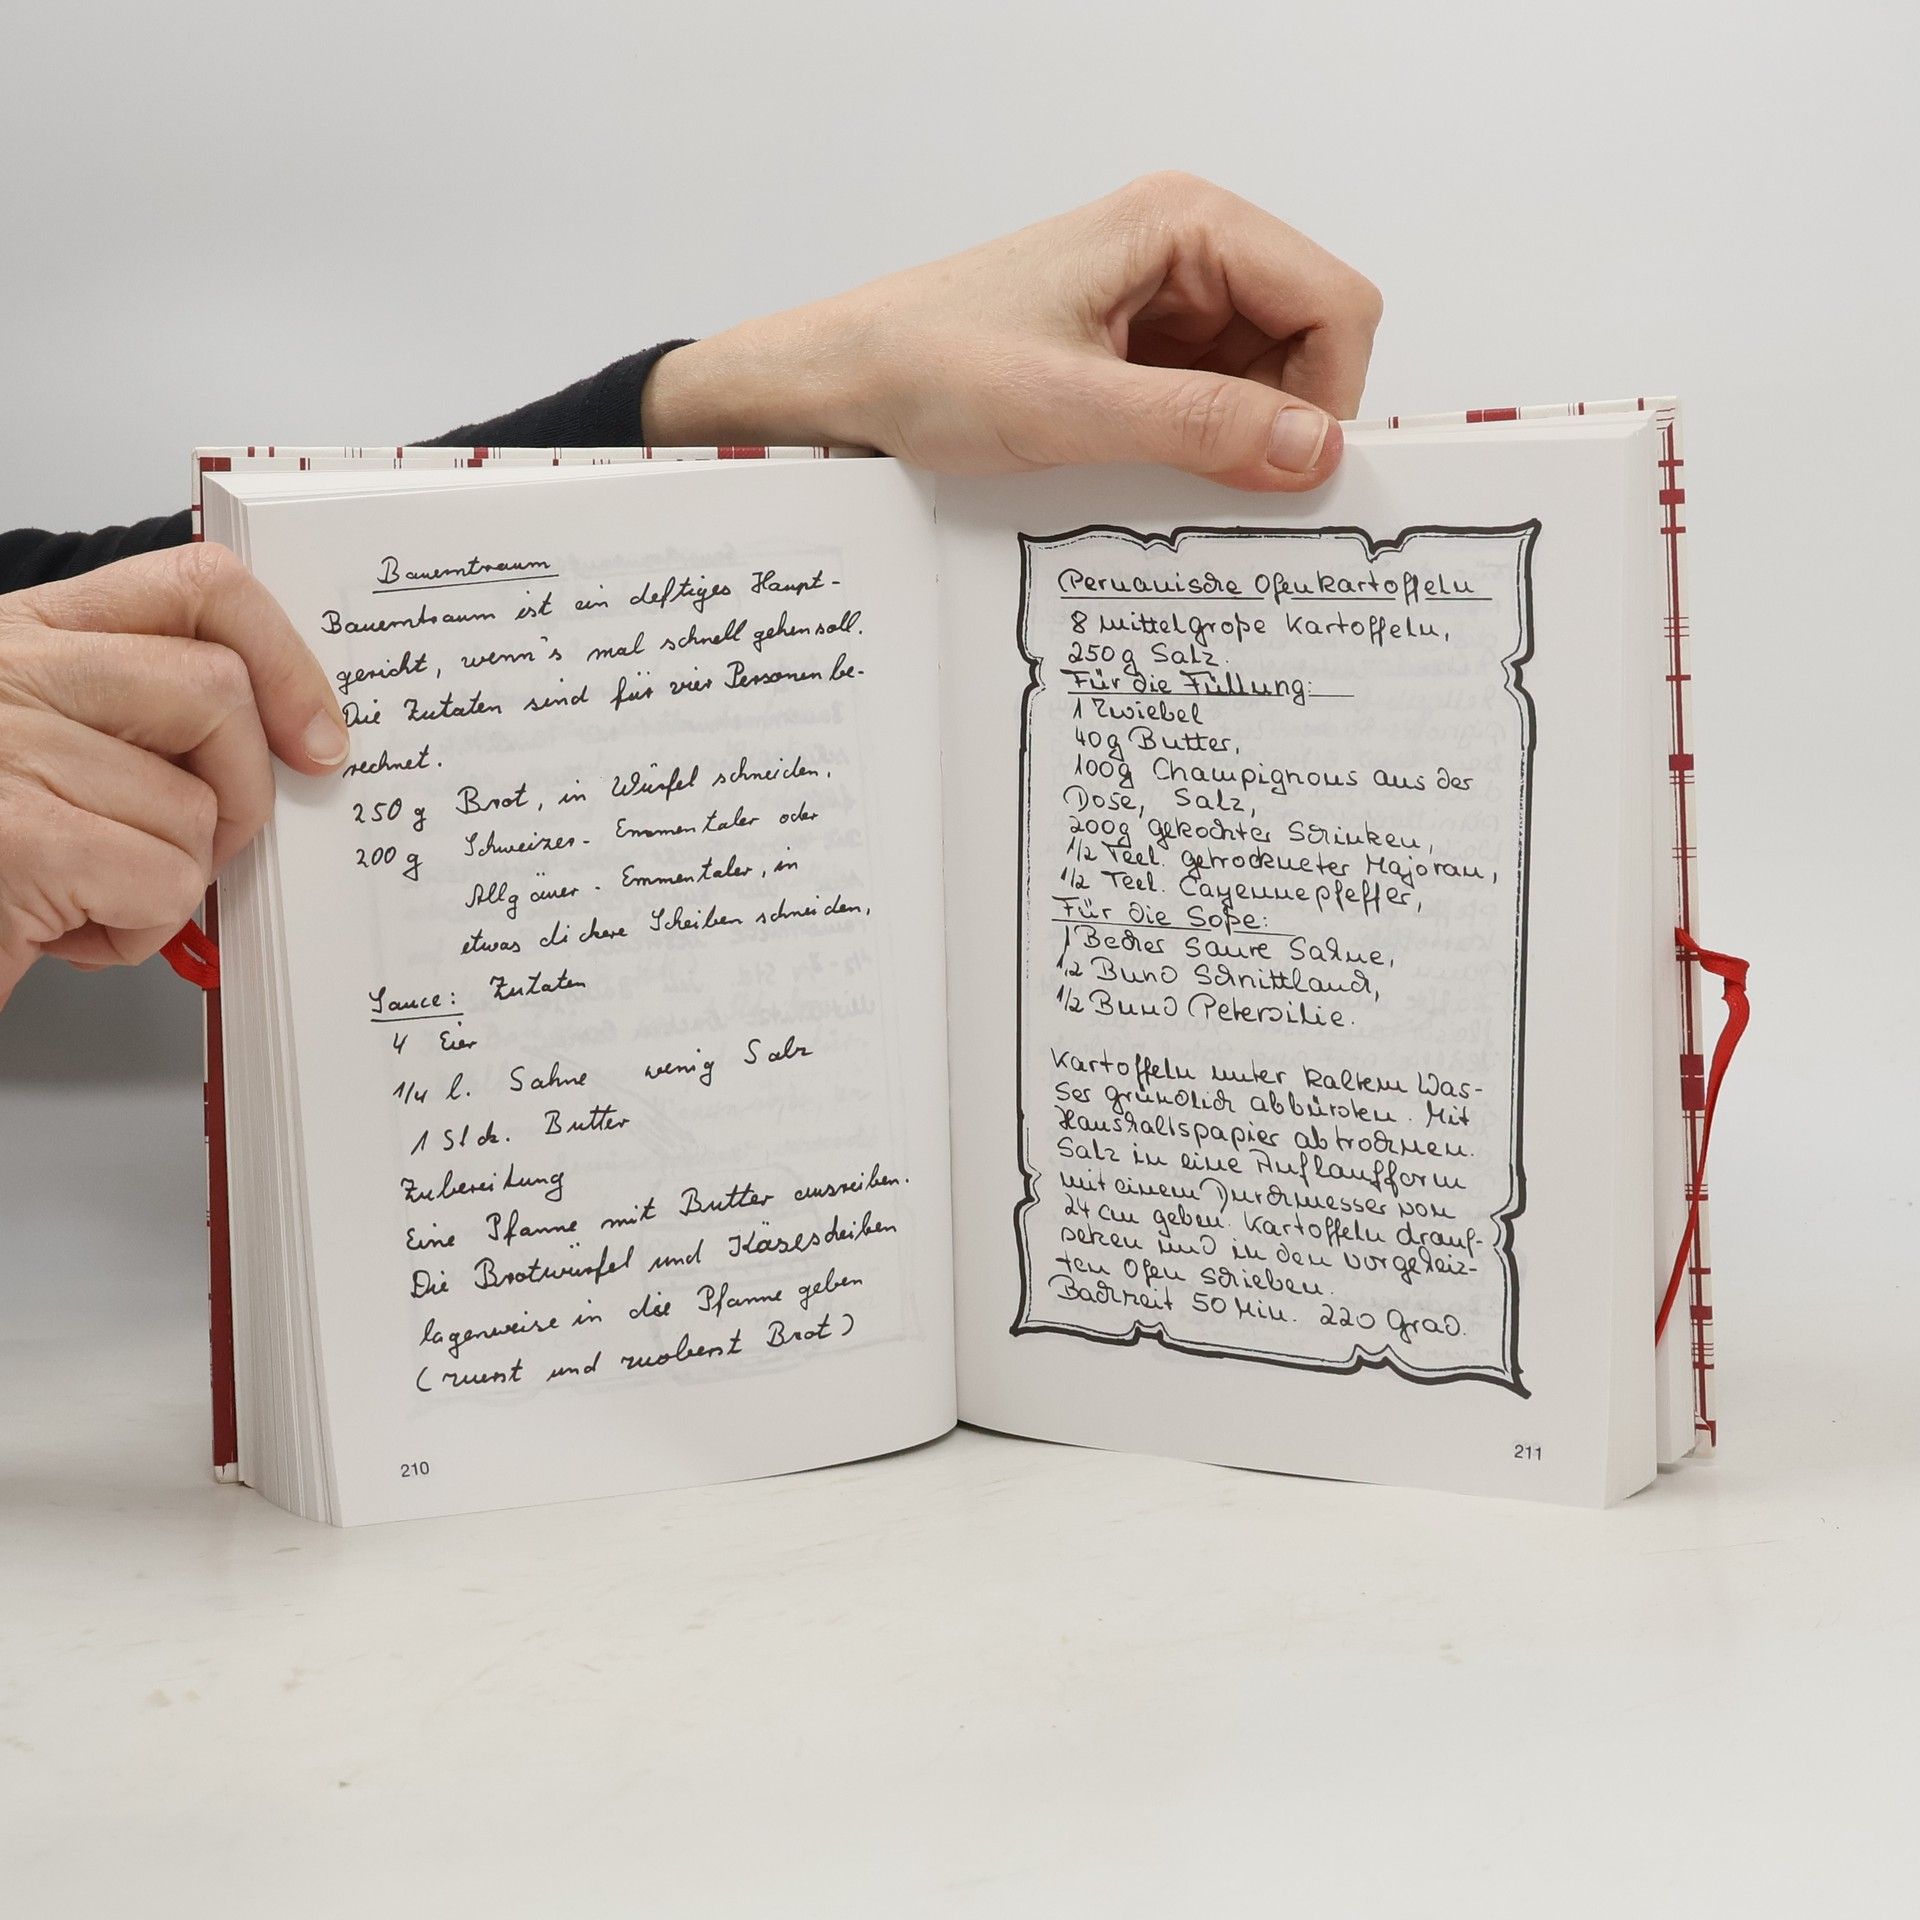 Bauerntraum
Bauerntraum ist ein deftiges Haupt-
gericht, wenn's mal schnell gehen soll.
Die Zutaten sind für vier Personen be-
rechnet.
250 g Brot, in Würfel schneiden,
200 g Schweizer- Emmentaler oder
Allgäuer - Emmentaler, in
etwas dickere Scheiben schneiden,
Sauce: Zutaten
4 Eier
1/4 l. Sahne wenig Salz
1 Stck. Butter
Zubereitung
Eine Pfanne mit Butter ausreiben.
Die Brotwürfel und Käsescheiben
lagenweise in die Pfanne geben
(zuerst und zuoberst Brot)
210
Peruanische Ofenkartoffeln
8 mittelgroße Kartoffeln,
250g Salz.
Für die Füllung:
1 Zwiebel
40g Butter,
100g Champignons aus der
Dose, Salz,
200g gekochter Schinken,
1/2 Teel. getrockneter Majoran,
1/2 Teel. Cayennepfeffer,
Für die Soße:
1 Becher saure Sahne,
1/2 Bund Schnittlauch,
1/2 Bund Petersilie.
Kartoffeln unter kaltem Was-
ser gründlich abbürsten. Mit
Haushaltspapier abtrocknen.
Salz in eine Auflaufform
mit einem Durchmesser von
24 cm geben. Kartoffeln drauf-
setzen und in den vorgeheiz-
ten Ofen schieben.
Backzeit 50 Min. 220 Grad.
211